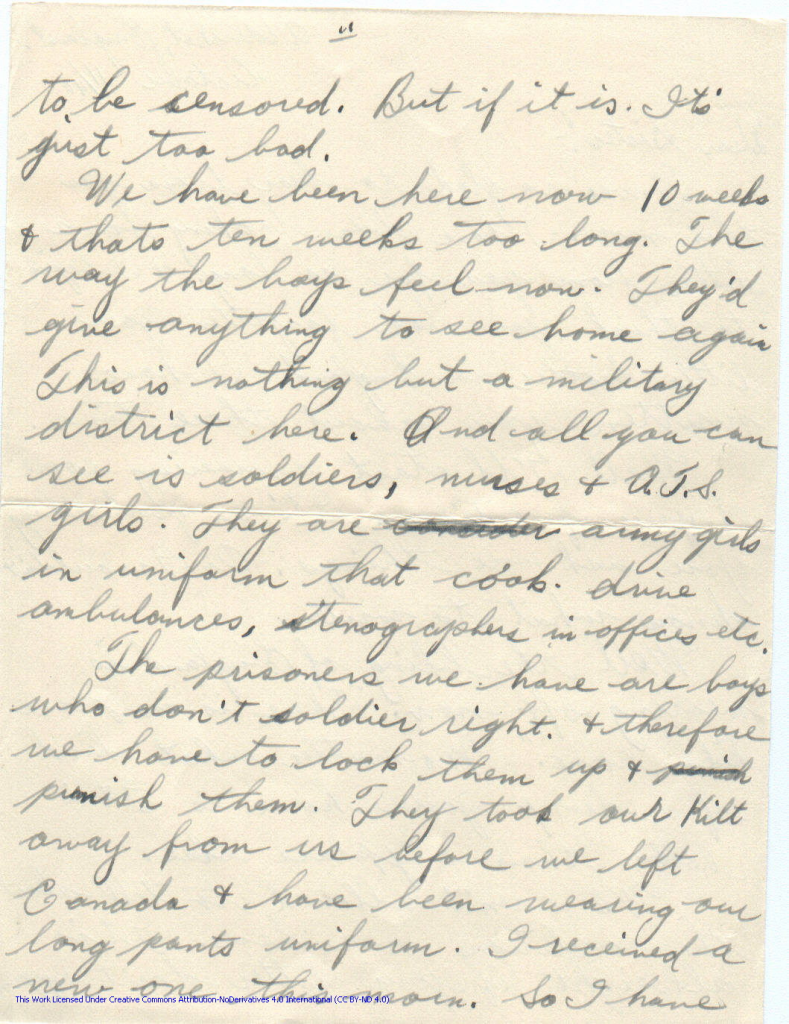 "
to be censored. But if it is. Its
just too bad.
We have been here now 10 weeks
& thats ten weeks too long. The
way the boys feel now. They'd
give anything to see home again
This is nothing but a military
district here. And all you can
see is soldiers, nurses & A.T.S.
girls. They are army girls
in uniform that cook. drive
ambulances, stenographers in offices etc.
The prisoners we have are boys
who don't soldier right. & therefore
we have to lock them up & punish
punish them. They took our Kilt
away from us before we left
Canada & have been wearing our
long pants uniform. I received a
new one this morn. So I have
This Work Licensed Under Creative Commons Attribution-NoDerivatives 4.0 International (CC BY-ND 4.0)